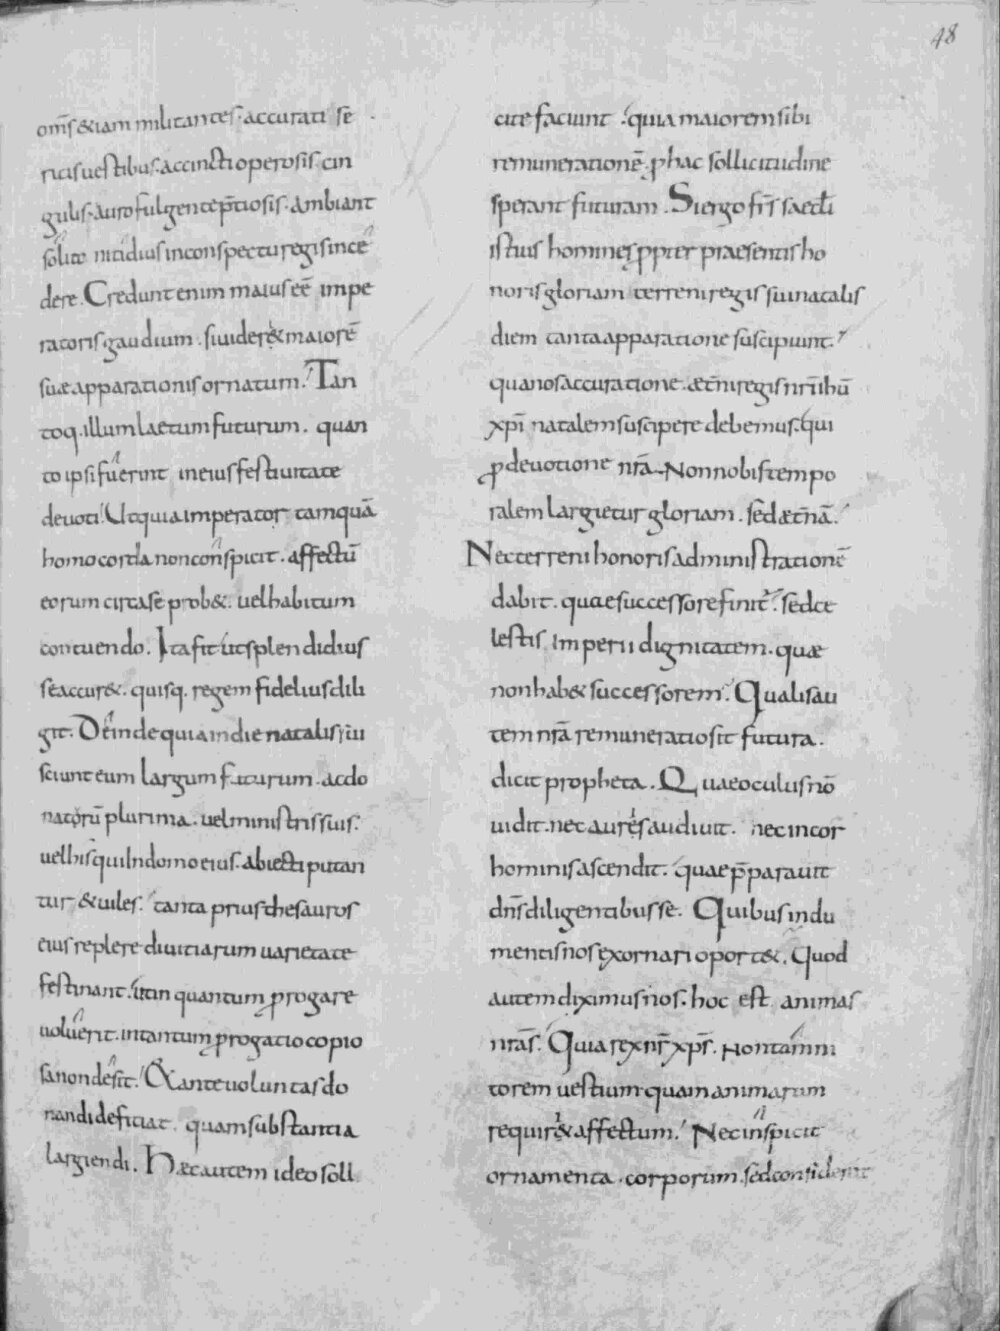 48
om̄s &iam militantes. accurati se
ricis uestibus. accincti operosis. cin
gulis. auro fulgente p̄tiosis. Ambiant
solito nitidius in conspectu regis ince
dere. Credunt enim maius eē impe
ratoris gaudium. si uider& maiorē
suæ apparationis ornatum. Tan
toq. illum laetum futurum. quan
to ipsi fuerint in eius festiuitate
deuoti. Ut quia imperator tamquā
homo corda non conspicit. affectū
eorum circa se prob&. uel habitum
contuendo. Ita fit ut splendidius
se accur&. quisq. regem fidelius dili
git. Deinde quia in die natalis sui
sciunt eum largum futurum. ac do
natorū plurima. uel ministris suis.
uel his qui In domo eius. abiecti putan
tur. & uiles. tanta prius thesauros
eius replere diuitiarum uarietate
festinant. ut in quantum ꝓrogare
uoluerit. in tantum ꝓrogatio copio
sa non desit. & ante uoluntas do
nandi deficiat. quam substantia
largiendi. Hæc autem ideo soll
cite faciunt. quia maiorem sibi
remunerationē. ꝓ hac sollicitudine
sperant futuram. Si ergo fr̄s saecƚi
istius homines ꝓpter praesentis ho
noris gloriam terreni regis sui natalis
diem tanta apparatione suscipiunt.
qua nos accuratione. æt̄ni regis nr̄i ihū
xp̄i natalem suscipere debemus. qui
ꝓ deuotione nr̄a. Non nobis tempo
ralem largietur gloriam. sed æt̄nā.
Nec terreni honoris administrationē
dabit. quae successore finit̄. sed ce
lestis. Imperii dignitatem. quæ
non hab& successorem. Qualis au
tem nr̄a remuneratio sit futura.
dicit propheta. Quae oculus nō
uidit. nec aures audiuit. nec in cor
hominis ascendit. quae p̄parauit
dn̄s diligentibus se. Quibus indu
mentis nos exornari oport&. Quod
autem diximus nos. hoc est animas
nr̄as. Quia rex nr̄ xp̄s. Non tam ni
torem uestium quam animarum
requir& affectum. Nec inspicit
ornamenta. corporum. sed considerat